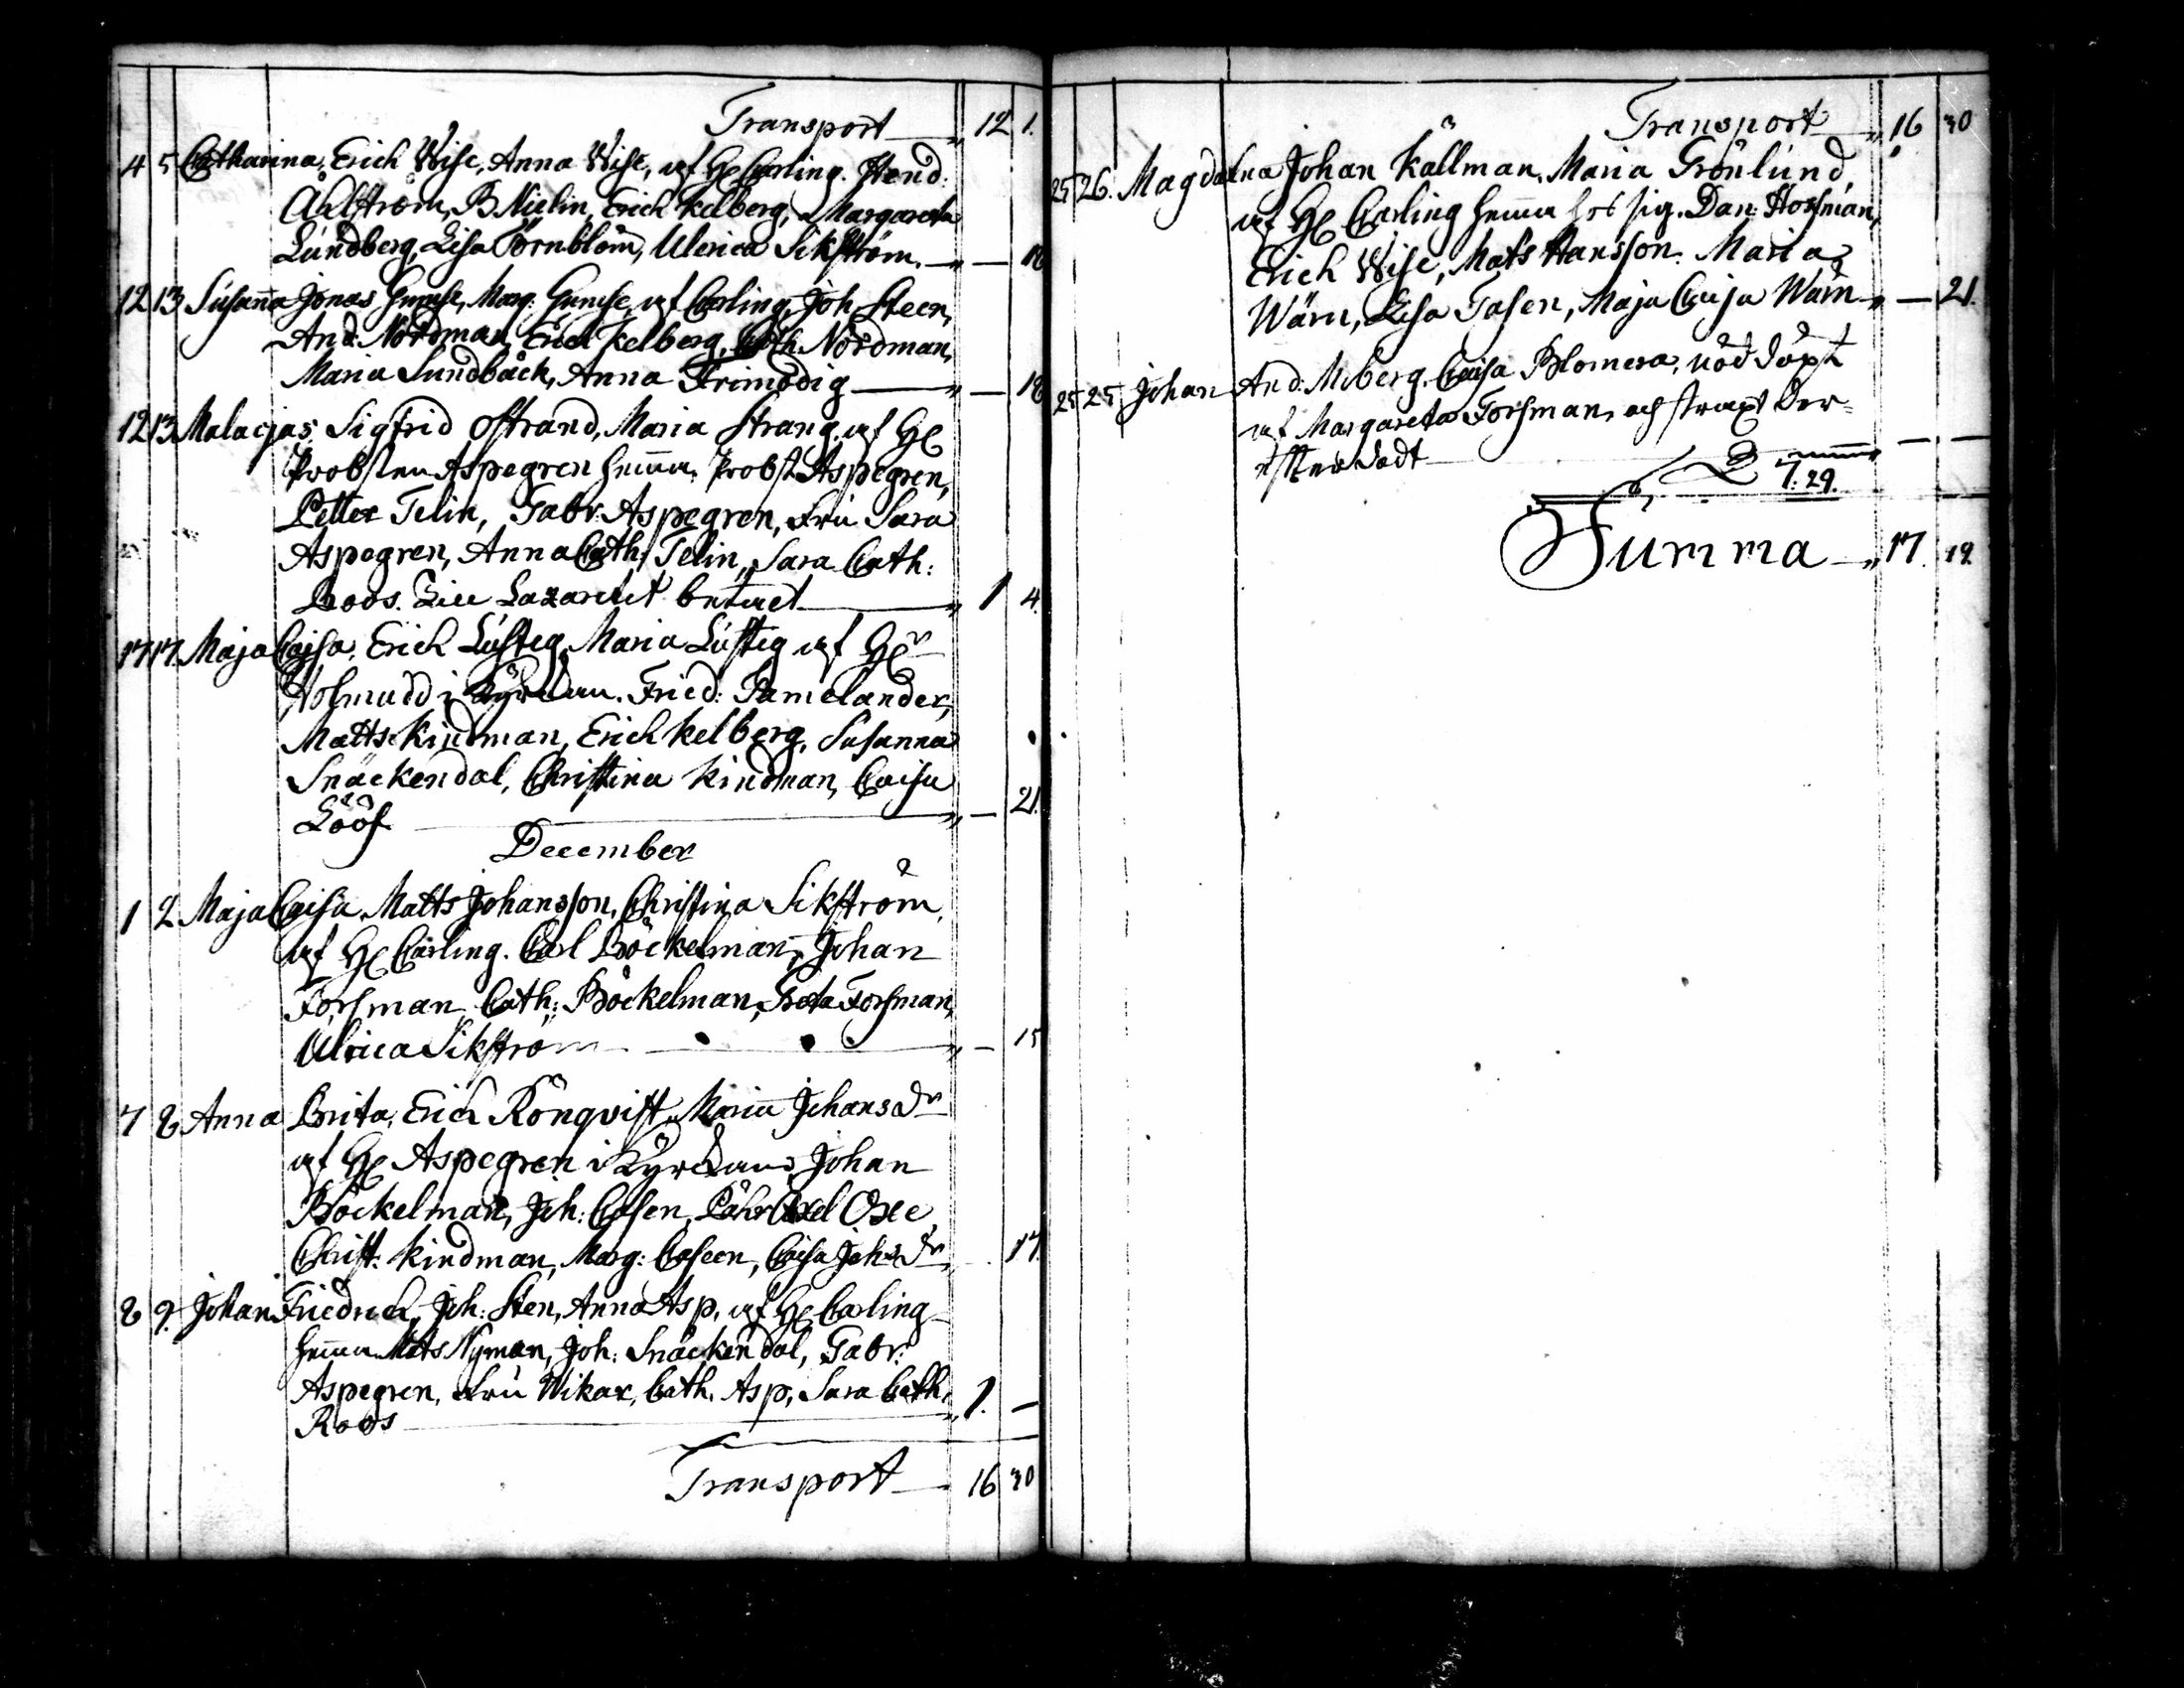 Transport 12 1.
4 5 Catharina, Erich Wise, Anna Wise, af H Carling. Hend:
Åhlström, B Mielin, Erich Kelberg, Margareta
Lundberg, Lisa Törnblom, Ulerica Sikström. — 18
12 13 Susanna Jonas Marg: af Carling, Joh Steen,
And: Nordman, Erich Kelberg, Cath: Nordman,
Maria Sundbäck, Anna Frimodig — 18
12 13 Malacjas, Sigfrid Ostrand, Maria Strang, af H
Probsten Aspegren hemma, Probst Aspegren,
Petter Telin, Gabr: Aspegren, Fru Sara
Aspegren, Anna Cath: Telin, Sara Cath:
Roos. Till Lazarettet betalt 1 4.
17 17. Maja Cajsa, Erich Lusteg, Maria Lusteg af H
i Kyrckan. Fried: Pamelander,
Matts Kindman, Erich Kelberg, Susanna
Snäckendal, Christina Kindman, Caisa
Lööf — 21.
December
1 2 Maja Caisa, Matts Johansson, Christina Sikström,
af H Carling. Carl Böckelman, Johan
Forsman, Cath: Böckelman, Greta Forsman,
Ulrica Sikström — 15
7 8 Anna Brita, Erich Rönqvist, Maria Johansdr
af H Aspegren i Kyrckan, Johan
Böckelman, Joh: Casen, Pähr Axel Oxe,
Christ: Kindman, Marg: Caseen, Caisa Johsdr 17.
8 9. Johan Friedrich, Joh: Sten, Anna Asp, af H Carling
hemma Mats Nyman, Joh: Snäckendal, Gabr:
Aspegren, Fru Wikar, Cath. Asp, Sara Cath:
Roos 1. —
Transport 16 30
Transport 16 30
25 26. Magdalena Johan Källman, Maria Grönlund,
af H Carling hemma hos sig. Dan: Hossman,
Erich Wise, Mats Hansson. Maria
Wärn, Lisa Tasen, Maja Caisa Wärn — 21.
25 25 Johan And: Moberg, Caisa Blomera, nöd döpt
af Margareta Forsman, och straxt der-
efter dödt — —
7. 29.
Summa 17. 19